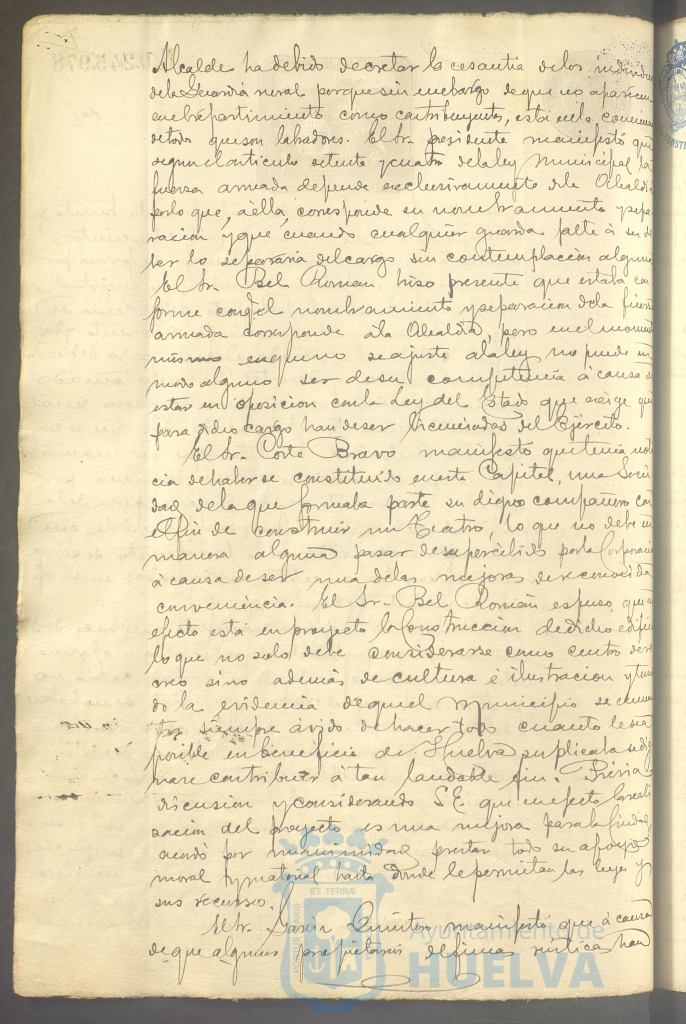 Alcalde ha debido decretar la cesantia de los individu
de la Guardia rural porque sin embargo de que no aparecen
en el repartimiento como contribuyentes, está en la conciencia
de todos que son labradores. El Sr. presidente manifestó que
segun el articulo setenta y cuatro de la ley Municipal la
fuerza armada depende exclusivamente de la Alcaldia
por lo que, á ella, corresponde su nombramiento y sepa
racion y que cuando cualquier guarda falte á su de
ber lo separaria del cargo sin contemplacion alguna
El Sr. Bel Roman hiso presente que estaba con
forme con q. el nombramiento y separacion de la fuerza
armada corresponde á la Alcaldia, pero en el momento
mismo en que no se ajuste a la ley no puede en
modo alguno ser de su competencia á causa de
estar en oposicion con la Ley del Estado que exige que
para dicho cargo han de ser licenciados del Ejército.
El Sr. Corte Bravo manifestó que tenia noti
cia de haberse constituido en esta Capital, una Socie
dad de la que formaba parte su digno compañero con
el fin de construir un Teatro, lo que no debe en
manera alguna pasar desapercibido por la Corporacion
á causa de ser una de las mejoras de reconocida
conveniencia. El Sr. Bel Román espuso, que en
efecto está en proyecto la Construccion de dicho edificio
lo que no solo debe considerarse como centro de re
creo sino ademas de cultura é ilustracion y tenien
do la evidencia de que el Municipio se encuen
tra siempre ávido de hacer todo cuanto le sea
posible en beneficio de Huelva suplicaba se dig
nara contribuir á tan laudable fin. Prévia
discusion y considerando S.E. que en efecto la reali
zacion del proyecto es una mejora para la Ciudad
acordó por unanimidad prestar todo su apoyo
moral y material hasta donde le permitan las leyes y
sus recursos.
El Sr. Garcia Quintero manifestó que á causa
de que algunos propietarios de fincas rústicas han
Ayuntamiento de
HUELVA
ET TERRÆ
PORTUS MARIS